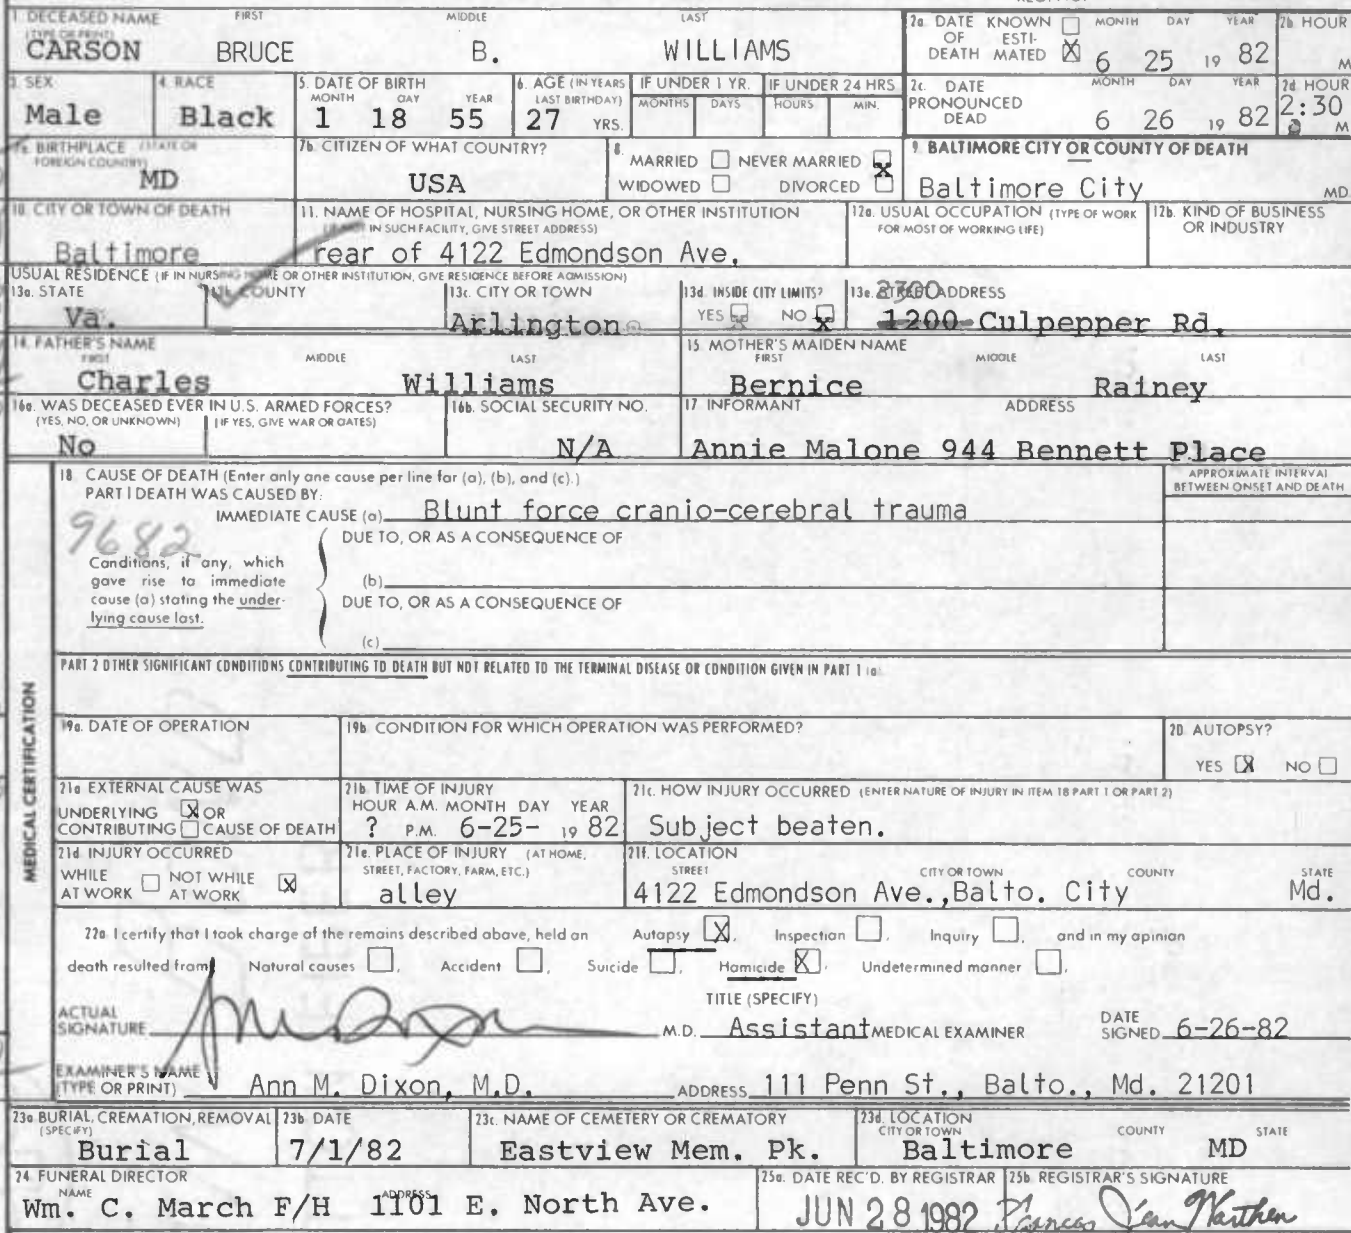 1 DECEASED NAME FIRST MIDDLE LAST
(TYPE OR PRINT)
CARSON BRUCE B. WILLIAMS
2a. DATE KNOWN OF ESTI- DEATH MATED X MONTH DAY YEAR 6 25 19 82
2b HOUR M
3. SEX Male
4. RACE Black
5. DATE OF BIRTH MONTH DAY YEAR 1 18 55
6. AGE (IN YEARS LAST BIRTHDAY) 27 YRS.
IF UNDER 1 YR. MONTHS DAYS
IF UNDER 24 HRS HOURS MIN.
2c. DATE PRONOUNCED DEAD MONTH DAY YEAR 6 26 19 82
2d HOUR 2:30 M
7a. BIRTHPLACE (STATE OR FOREIGN COUNTRY) MD
7b. CITIZEN OF WHAT COUNTRY? USA
8. MARRIED NEVER MARRIED X
WIDOWED DIVORCED
9. BALTIMORE CITY OR COUNTY OF DEATH
Baltimore City MD.
10. CITY OR TOWN OF DEATH Baltimore
11. NAME OF HOSPITAL, NURSING HOME, OR OTHER INSTITUTION
IN SUCH FACILITY, GIVE STREET ADDRESS)
rear of 4122 Edmondson Ave,
12a. USUAL OCCUPATION (TYPE OF WORK FOR MOST OF WORKING LIFE)
12b. KIND OF BUSINESS OR INDUSTRY
USUAL RESIDENCE (IF IN NURSING HOME OR OTHER INSTITUTION, GIVE RESIDENCE BEFORE ADMISSION)
13a. STATE Va.
13b. COUNTY
13c. CITY OR TOWN Arlington
13d. INSIDE CITY LIMITS? YES NO X
13e. STREET ADDRESS 2300
1200 Culpepper Rd.
14. FATHER'S NAME FIRST MIDDLE LAST
Charles Williams
15 MOTHER'S MAIDEN NAME FIRST MIDDLE LAST
Bernice Rainey
16a. WAS DECEASED EVER IN U.S. ARMED FORCES?
(YES, NO, OR UNKNOWN) (IF YES, GIVE WAR OR DATES)
No
16b. SOCIAL SECURITY NO. N/A
17 INFORMANT ADDRESS
Annie Malone 944 Bennett Place
18 CAUSE OF DEATH (Enter only one cause per line for (a), (b), and (c).)
PART I DEATH WAS CAUSED BY:
APPROXIMATE INTERVAL BETWEEN ONSET AND DEATH
IMMEDIATE CAUSE (a) Blunt force cranio-cerebral trauma
9682
DUE TO, OR AS A CONSEQUENCE OF
Conditions, if any, which
gave rise to immediate
cause (a) stating the under-
lying cause last.
(b)
DUE TO, OR AS A CONSEQUENCE OF
(c)
PART 2 OTHER SIGNIFICANT CONDITIONS CONTRIBUTING TO DEATH BUT NOT RELATED TO THE TERMINAL DISEASE OR CONDITION GIVEN IN PART 1 (a)
MEDICAL CERTIFICATION
19a. DATE OF OPERATION
19b. CONDITION FOR WHICH OPERATION WAS PERFORMED?
20. AUTOPSY?
YES X NO
21a EXTERNAL CAUSE WAS
UNDERLYING X OR
CONTRIBUTING CAUSE OF DEATH
21b. TIME OF INJURY
HOUR A.M. MONTH DAY YEAR
? P.M. 6-25- 19 82
21c. HOW INJURY OCCURRED (ENTER NATURE OF INJURY IN ITEM 18 PART 1 OR PART 2)
Subject beaten.
21d INJURY OCCURRED
WHILE AT WORK NOT WHILE AT WORK X
21e. PLACE OF INJURY (AT HOME, STREET, FACTORY, FARM, ETC.)
alley
21f. LOCATION
STREET CITY OR TOWN COUNTY STATE
4122 Edmondson Ave.,Balto. City Md.
22a. I certify that I took charge of the remains described above, held an Autopsy X, Inspection , Inquiry , and in my opinion
death resulted from Natural causes , Accident , Suicide , Homicide X, Undetermined manner ,
TITLE (SPECIFY)
ACTUAL SIGNATURE M.D. Assistant MEDICAL EXAMINER
DATE SIGNED 6-26-82
EXAMINER'S NAME (TYPE OR PRINT) Ann M. Dixon, M.D. ADDRESS 111 Penn St., Balto., Md. 21201
23a BURIAL, CREMATION, REMOVAL (SPECIFY) Burial
23b DATE 7/1/82
23c. NAME OF CEMETERY OR CREMATORY Eastview Mem. Pk.
23d. LOCATION CITY OR TOWN COUNTY STATE
Baltimore MD
24 FUNERAL DIRECTOR
NAME ADDRESS
Wm. C. March F/H 1101 E. North Ave.
25a. DATE REC'D. BY REGISTRAR JUN 28 1982
25b. REGISTRAR'S SIGNATURE Frances Jean Warthen